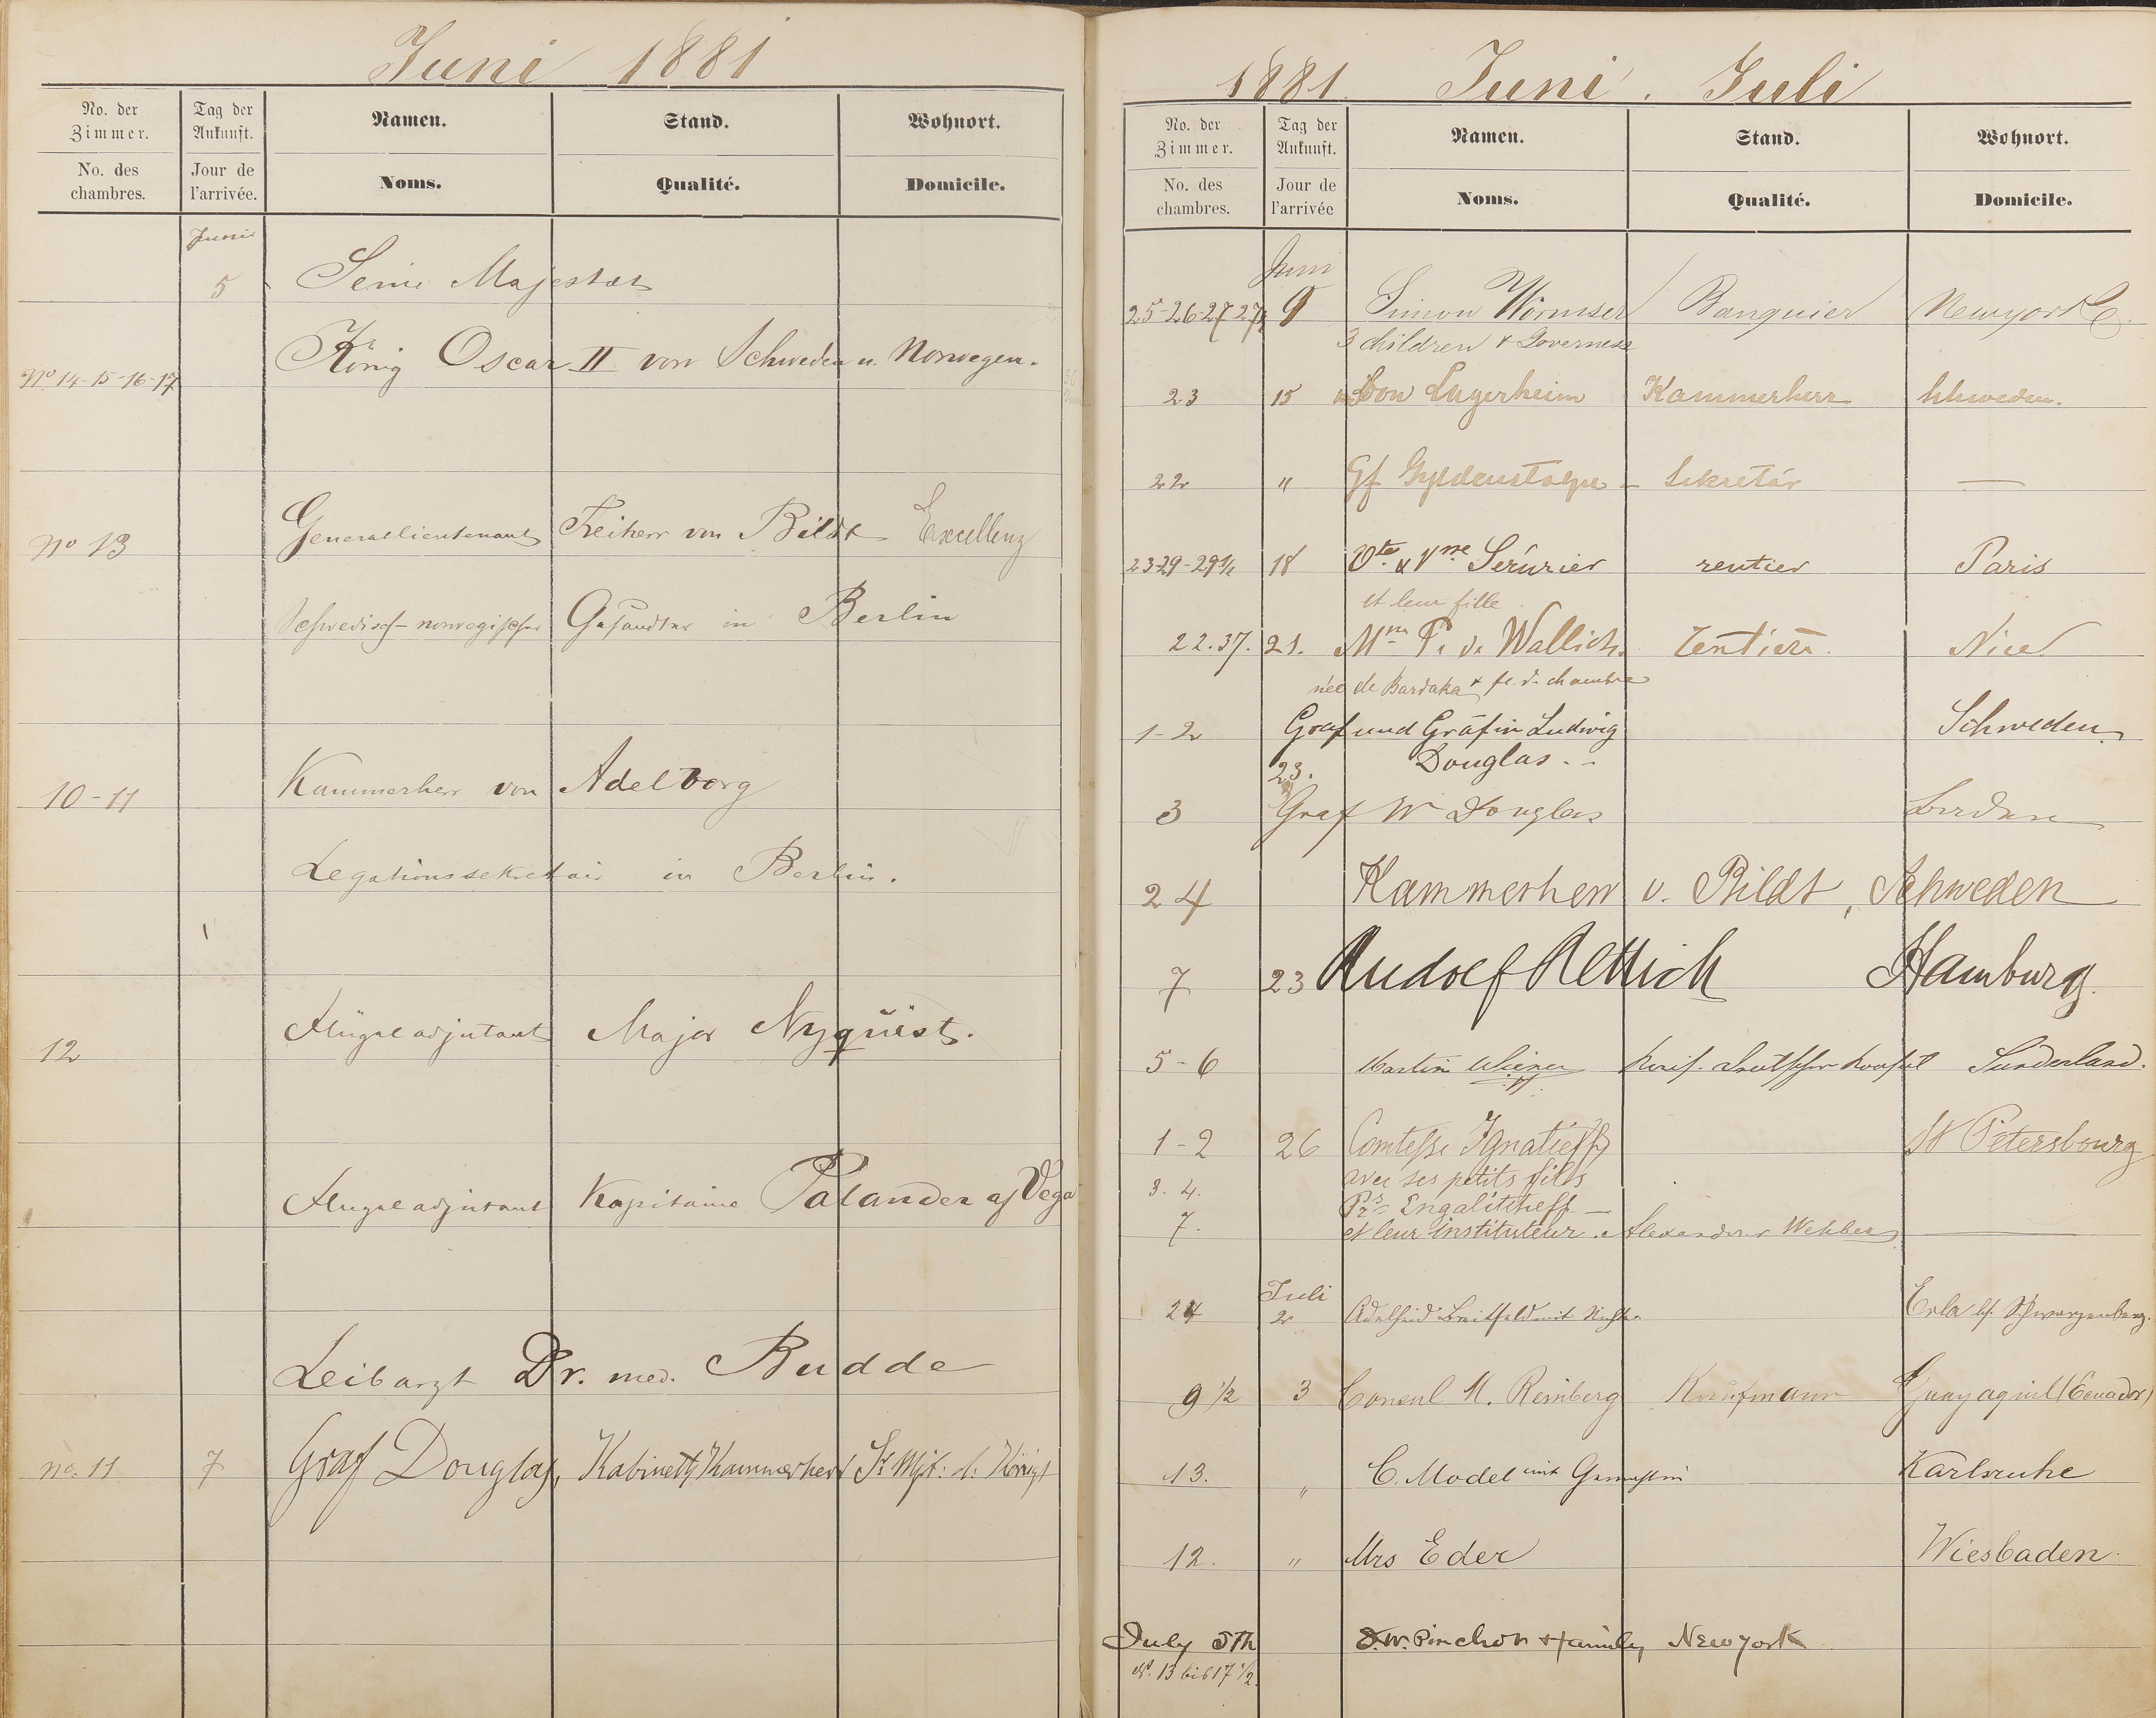 Juni 1881
No. der Zimmer. Tag der Ankunft. Namen. Stand. Wohnort.
No. des chambres. Jour de l'arrivée. Noms. Qualité. Domicile.
Juni
5 Seine Majestät
No 14-15-16-17 König Oscar II von Schweden u. Norwegen.
No 13 Generallieutenant Freiherr von Bildt Excellenz
Schwedisch-norwegischer Gesandter in Berlin
10-11 Kammerherr von Adelborg
Legationssekretair in Berlin.
12 Flügeladjutant Major Nyquist.
Flügeladjutant Kapitaine Palander af Vega
Leibarzt Dr. med. Budde
No. 11 7 Graf Douglas, Kabinetts Kammerherr Sr Mjt: d: Königs
1881. Juni. Juli
No. der Zimmer. Tag der Ankunft. Namen. Stand. Wohnort.
No. des chambres. Jour de l'arrivée Noms. Qualité. Domicile.
Juni
25-26-27 27½ 9 Simon Wormser Banquier Newyork
3 children & Governess
23 15 von Lagerheim Kammerherr Schweden.
22 " Gf Gyldenstolpe - Sekretär —
23 29-29½ 18 Vte & Vsse Sérurier rentier Paris
et leur fille
22.37. 21. Mm P. de Wallich. rentière. Nice
née de Bardaka & fe. d. chambre
1-2 Graf und Gräfin Ludwig Schweden
23. Douglas.
3 Graf W Douglas
24 Kammerherr v. Bildt, Schweden
7 23 Rudolf Rettich Hamburg.
5-6 Martin Wiener Kais. Deutscher Konsul Sunderland.
1-2 26 Comtesse Ignatieff St Petersbourg
3. 4. avec ses petits fils
7. Pces Engalitcheff —
et leur instituteur. Alexander Webber
Juli
24 2 Adelheid Breitfeld mit Nichte. Erla bf. Schwarzenberg.
9½ 3 Consul M. Reinberg Kaufmann Guayaquil (Ecuador)
13. " C. Model mit Gemahlin Karlsruhe
12. " Mrs Eder Wiesbaden.
July 5th D.W. Pinchon & family New York
No. 13 bis 17½.